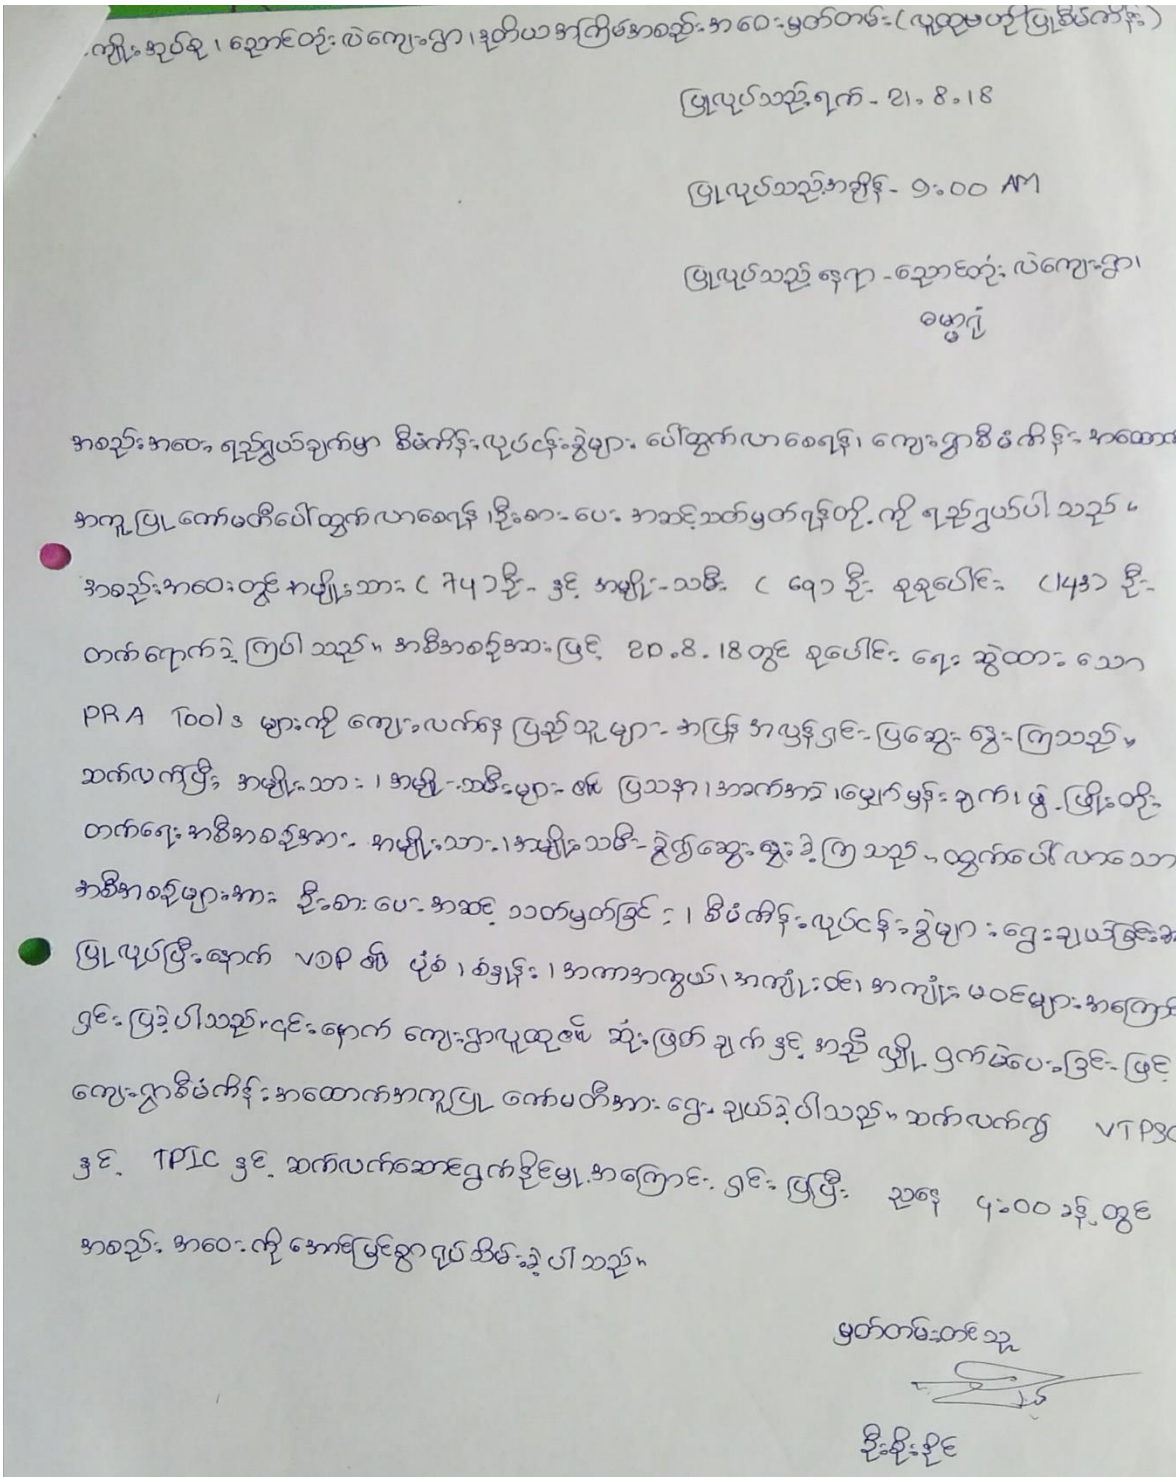 ကျိုးအုပ်စု ၊ ညောင်တုံးလဲကျေးရွာ ၊ ဒုတိယအကြိမ်အစည်းအဝေးမှတ်တမ်း (လူထုဗဟိုပြုစီမံကိန်း)
ပြုလုပ်သည့်ရက် - 21.8.18
ပြုလုပ်သည့်အချိန် - 9:00 AM
ပြုလုပ်သည့်နေရာ - ညောင်တုံးလဲကျေးရွာ၊
ဓမ္မာရုံ
အစည်းအဝေး ရည်ရွယ်ချက်မှာ စီမံကိန်းလုပ်ငန်းခွဲများ ပေါ်ထွက်လာစေရန်၊ ကျေးရွာစီမံကိန်းအထောက်
အကူပြုကော်မတီပေါ်ထွက်လာစေရန် ၊ ဦးစားပေးအဆင့်သတ်မှတ်ရန်တို့ကို ရည်ရွယ်ပါသည်။
အစည်းအဝေးတွင် အမျိုးသား ( 74 ) ဦး နှင့် အမျိုးသမီး ( ၆၇ ) ဦး စုစုပေါင်း (143) ဦး
တက်ရောက်ခဲ့ကြပါသည်။ အစီအစဉ်အားဖြင့် 20.8.18 တွင် စုပေါင်း ရေး ဆွဲထား သော
PRA Tools များကို ကျေးလက်နေ ပြည်သူများ အပြန်အလှန်ရှင်းပြဆွေးနွေးကြသည်။
ဆက်လက်ပြီး အမျိုးသား ၊ အမျိုးသမီးများ ၏ ပြဿနာ ၊ အခက်အခဲ ၊ မျှော်မှန်းချက် ၊ ဖွံ့ဖြိုးတိုး
တက်ရေးအစီအစဉ်အား အမျိုးသား ၊ အမျိုးသမီးခွဲ၍ဆွေးနွေးခဲ့ကြသည်။ ထွက်ပေါ်လာသော
အစီအစဉ်များအား ဦးစားပေးအဆင့် သတ်မှတ်ခြင်း ၊ စီမံကိန်းလုပ်ငန်းခွဲများ ရွေးချယ်ခြင်းအ
ပြုလုပ်ပြီးနောက် VDP ၏ ပုံစံ ၊ စံနှုန်း ၊ အကာအကွယ် ၊ အကျုံးဝင် ၊ အကျုံးမဝင်များအကြော
ရှင်းပြခဲ့ပါသည်။ ၎င်းနောက် ကျေးရွာလူထု၏ ဆုံးဖြတ်ချက်နှင့်အညီ လျှို့ဝှက်မဲပေးခြင်းဖြင့်
ကျေးရွာစီမံကိန်းအထောက်အကူပြု ကော်မတီအား ရွေးချယ်ခဲ့ပါသည်။ ဆက်လက်၍ VTPSC
နှင့် TPIC နှင့် ဆက်လက်ဆောင်ရွက်နိုင်မှုအကြောင်း ရှင်းပြပြီး ညနေ ၄:00 ခန့်တွင်
အစည်းအဝေးကို အောင်မြင်စွာရုပ်သိမ်းခဲ့ပါသည်။
မှတ်တမ်းတင်သူ
ဦးစိုးနိုင်